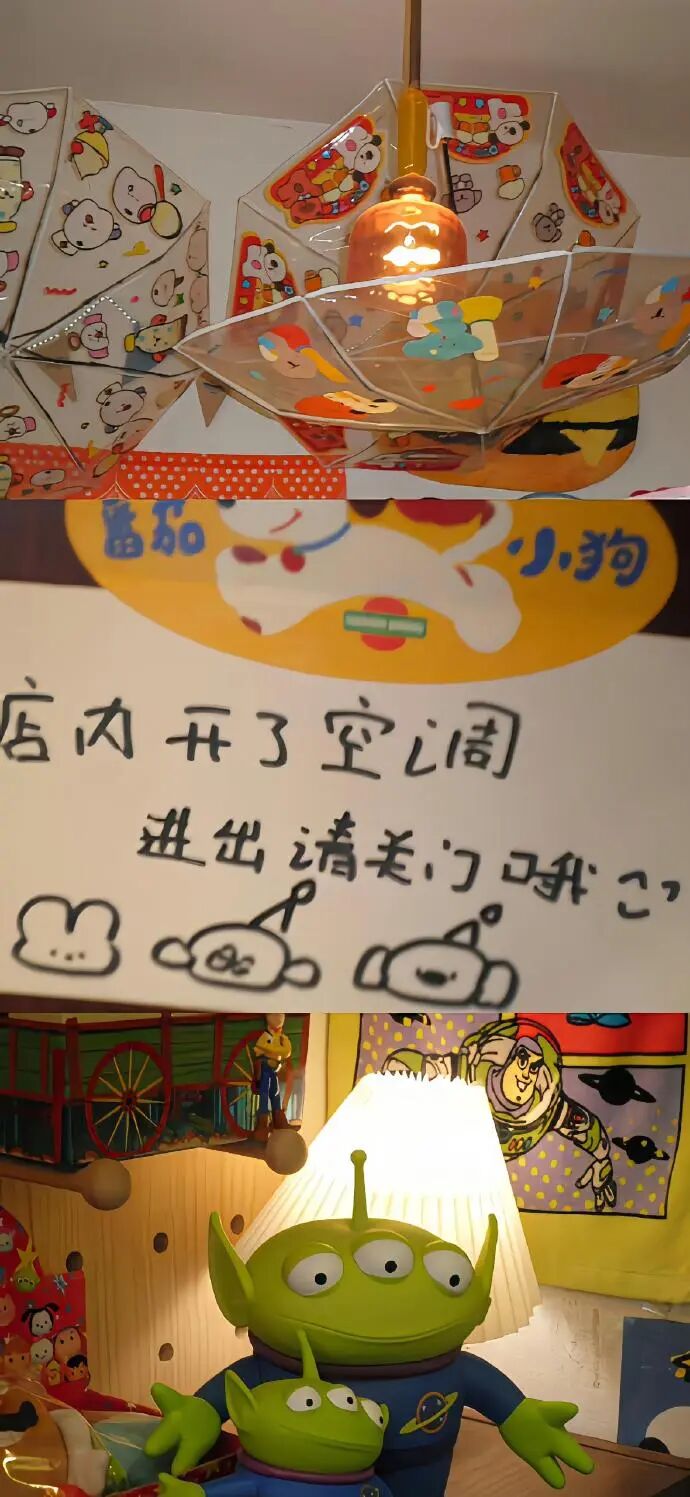 番茄 小狗
店内开了空调
进出请关门哦